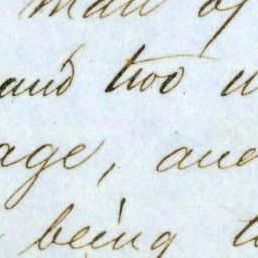 man of
and two
age, and
being